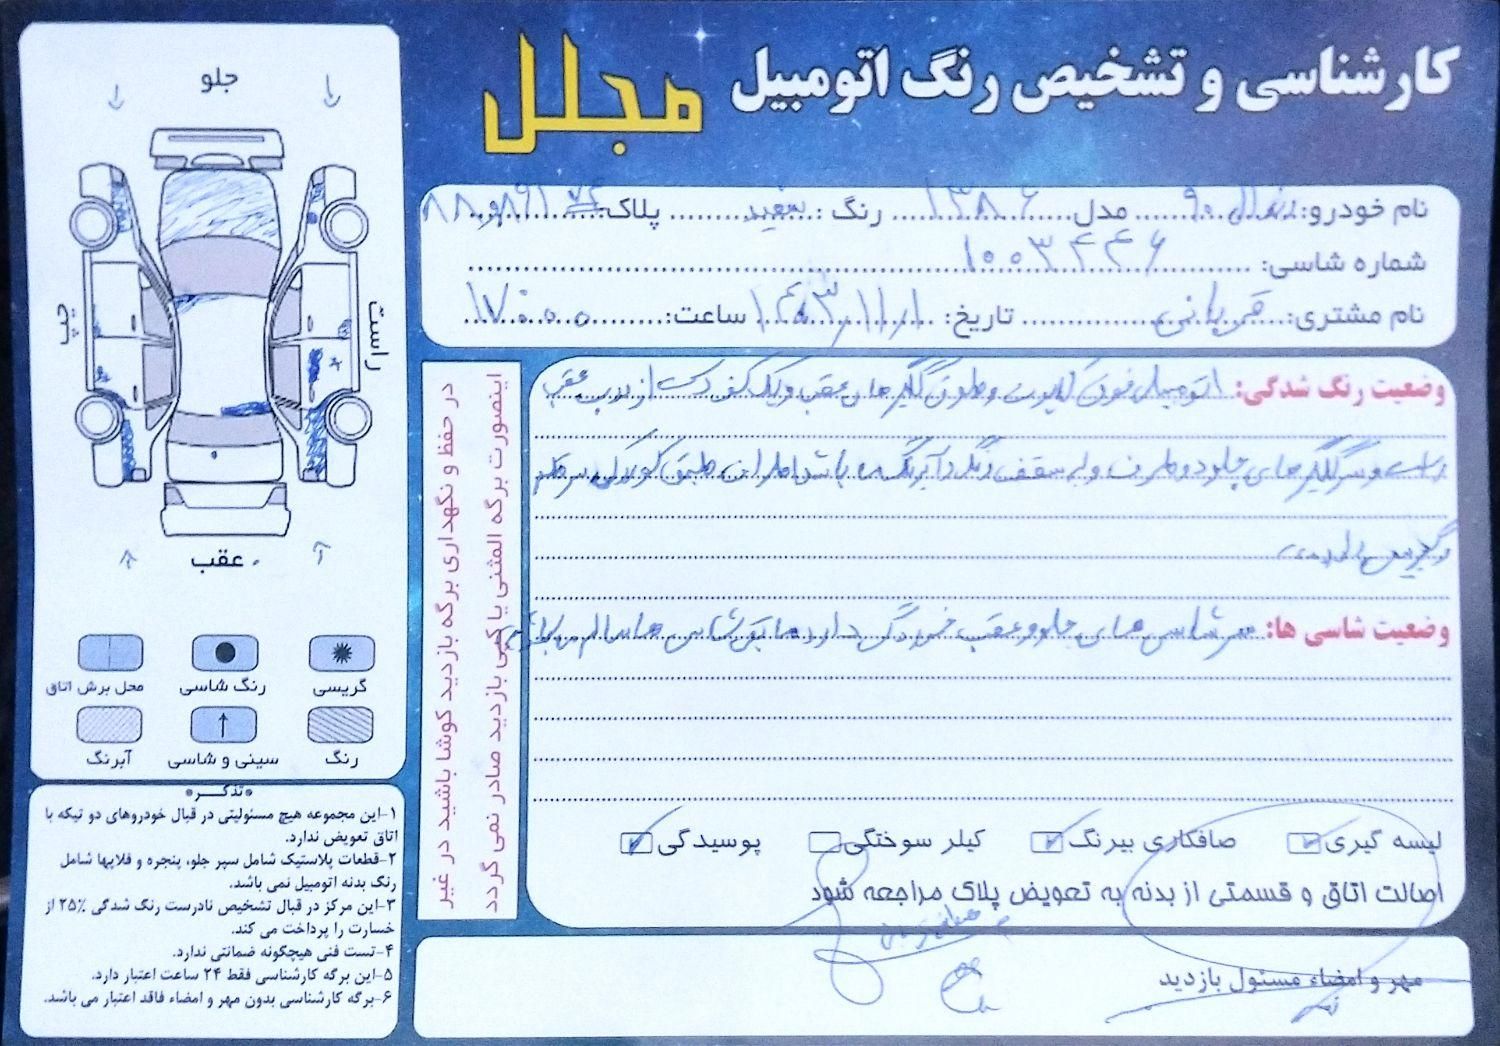 کارشناسی و تشخیص رنگ اتومبیل مجلل
نام خودرو: رنو ال ۹۰ مدل ۱۳۸۶ رنگ: سفید پلاک
شماره شاسی: ۱۰۰۳۴۴۶
نام مشتری: قربانی تاریخ: ۱۴۰۳/۱۱/۱ ساعت: ۱۷:۰۰
وضعیت رنگ شدگی: اتومبیل فوق کاپوت و ستون گلگیرهای عقب و یک از درب عقب
راست و سرگلگیرهای جلو دو طرف و لبه سقف رنگ و آبرنگ می باشد
وضعیت شاسی ها: سرشاسی های جلو و عقب خوردگی دارد مابقی شاسی ها سالم می باشد
لیسه گیری صافکاری بیرنگ کیلر سوختگی پوسیدگی
اصالت اتاق و قسمتی از بدنه به تعویض پلاک مراجعه شود
مهر و امضاء مسئول بازدید
در حفظ و نگهداری برگه بازدید کوشا باشید در غیر
اینصورت برگه المثنی یا کپی بازدید صادر نمی گردد
جلو
چپ
راست
عقب
گریسی رنگ شاسی محل برش اتاق
رنگ سینی و شاسی آبرنگ
*تذکـــر*
۱-این مجموعه هیچ مسئولیتی در قبال خودروهای دو تیکه با
اتاق تعویض ندارد.
۲-قطعات پلاستیک شامل سپر جلو، پنجره و فلاپها شامل
رنگ بدنه اتومبیل نمی باشد.
۳-این مرکز در قبال تشخیص نادرست رنگ شدگی ۲۵٪ از
خسارت را پرداخت می کند.
۴-تست فنی هیچگونه ضمانتی ندارد.
۵-این برگه کارشناسی فقط ۲۴ ساعت اعتبار دارد.
۶-برگه کارشناسی بدون مهر و امضاء فاقد اعتبار می باشد.